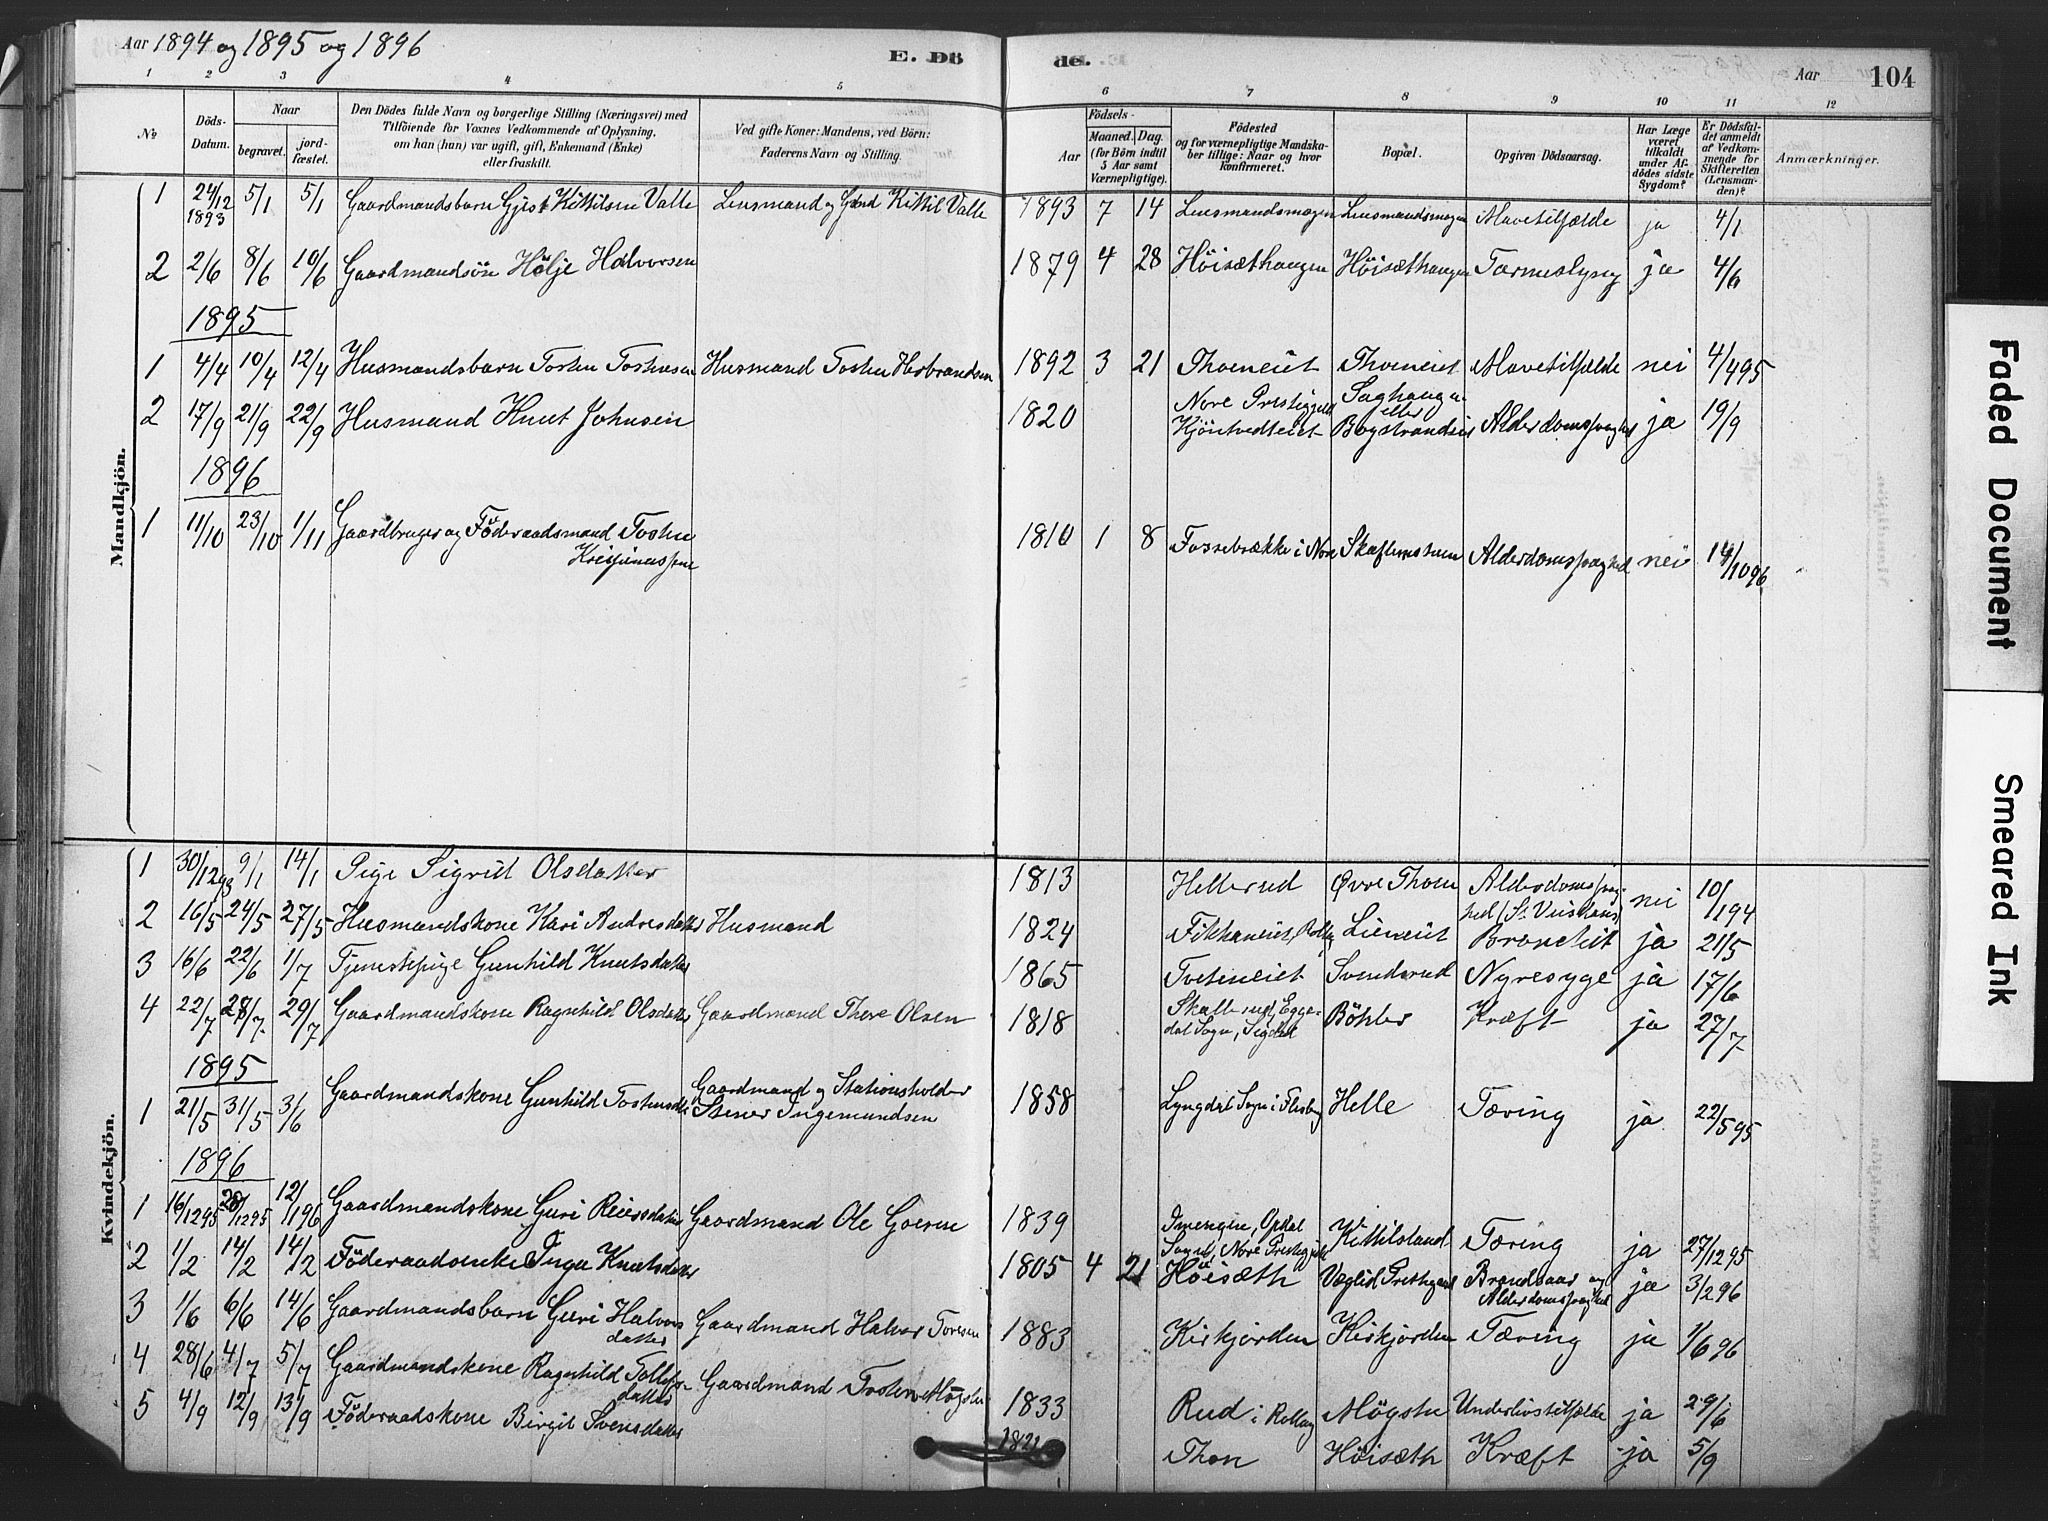 Aar 1894 og 1895 og 1896
E. Dö
de.
Aar
104
1 2 3 4 5 6 7 8 9 10 11 12
No
Döds-Datum.
Naar
begravet.
jord-fæstet.
Den Dödes fulde Navn og borgerlige Stilling (Næringsvei) med
Tilföiende for Voxnes Vedkommende af Oplysning,
om han (hun) var ugift, gift, Enkemand (Enke)
eller fraskilt.
Ved gifte Koner: Mandens, ved Börn:
Faderens Navn og Stilling.
Födsels-
Aar
Maaned. Dag.
(for Börn indtil
5 Aar samt
Værnepligtige).
Födested
og for værnepligtige Mandska-
ber tillige: Naar og hvor
konfirmeret.
Bopæl.
Opgiven Dödsaarsag.
Har Læge
været
tilkaldt
under Af-
dödes sidste
Sygdom?
Er Dödsfal-
det anmeldt
af Vedkom-
mende for
Skifteretten
(Lensman-
den)?
Anmærkninger.
Mandkjön.
1 24/12 1893 5/1 5/1 Gaardmandsbarn Kittilsen Valle Lensmand og Kittil Valle 1893 7 14 Lensmandsmogen Lensmandsmogen Mavetilfælde ja 4/1
2 2/6 8/6 10/6 Gaardmandsön Hölje Halvorsen 1879 4 28 Höisæthaugen Höisæthaugen Tarmeslyng ja 4/6
1895
1 4/4 10/4 12/4 Husmandsbarn Tosten Tostensen Husmand Tosten Herbrandsen 1892 3 21 Thoeneiet Thoeneiet Mavetilfælde nei 4/4 95
2 17/9 21/9 22/9 Husmand Knut Johnsen 1820 Nore Prestigjeld Kjöntvedteiet Saghaugen eller Alderdomssvaghed ja 19/9
1896
1 11/10 23/10 1/11 Gaardbruger og Föderaadsmand Tosten
1810 1 8 Fossebrække i Nore Alderdomssvaghed nei 14/10 96
Kvindekjön.
1 30/12 93 9/1 14/1 Pige Sigrid Olsdatter 1813 Hellerud Øvre Thoen Alderdomssvag-
hed nei 10/1 94
2 16/5 24/5 27/5 Husmandskone Kari Andresdatter Husmand 1824 Lieneiet Bronchit ja 21/5
3 16/6 22/6 1/7 Tjenestepige Gunhild Knutsdatter 1865 Tveteneiet Svendsrud Nyresyge ja 17/6
4 22/7 28/7 29/7 Gaardmandskone Ragnhild Olsdatter Gaardmand Thore Olsen 1818 Skallerud, Egge-
dal Sogn, Sigdal Böhler Kræft ja 27/7
1895
1 21/5 31/5 3/6 Gaardmandskone Gunhild Tostensdtr Gaardmand og Stationsholder
Stener Ingemundsen 1858 Lyngdal Sogn i Flesberg Helle Tæring ja 22/5 95
1896
1 16/12 95 28/12 95 12/1 96 Gaardmandskone Guri Reiersdatter Gaardmand Ole Goersen 1839 Opdal
Sogn, Nore Prestigjeld Kittilsland Tæring ja 27/12 95
2 1/2 14/2 14/2 Föderaadsenke Inga Knutsdatter 1805 4 21 Höisæth Væglid Prestegaard Brandsaar og
Alderdomssvaghed ja 3/2 96
3 1/6 6/6 14/6 Gaardmandsbarn Guri Halvors
datter Gaardmand Halvor Toresen 1883 Kirkjorden Kirkjorden Tæring ja 1/6 96
4 28/6 4/7 5/7 Gaardmandskone Ragnhild Tollefs-
datter Gaardmand Tosten Mögsten 1833 Rud i Rollag Mögsten Underlivstilfælde ja 29/6
5 4/9 12/9 13/9 Föderaadskone Birgit Svensdatter 1821 Thon Höisæth Kræft ja 5/9
Faded Document
Smeared Ink